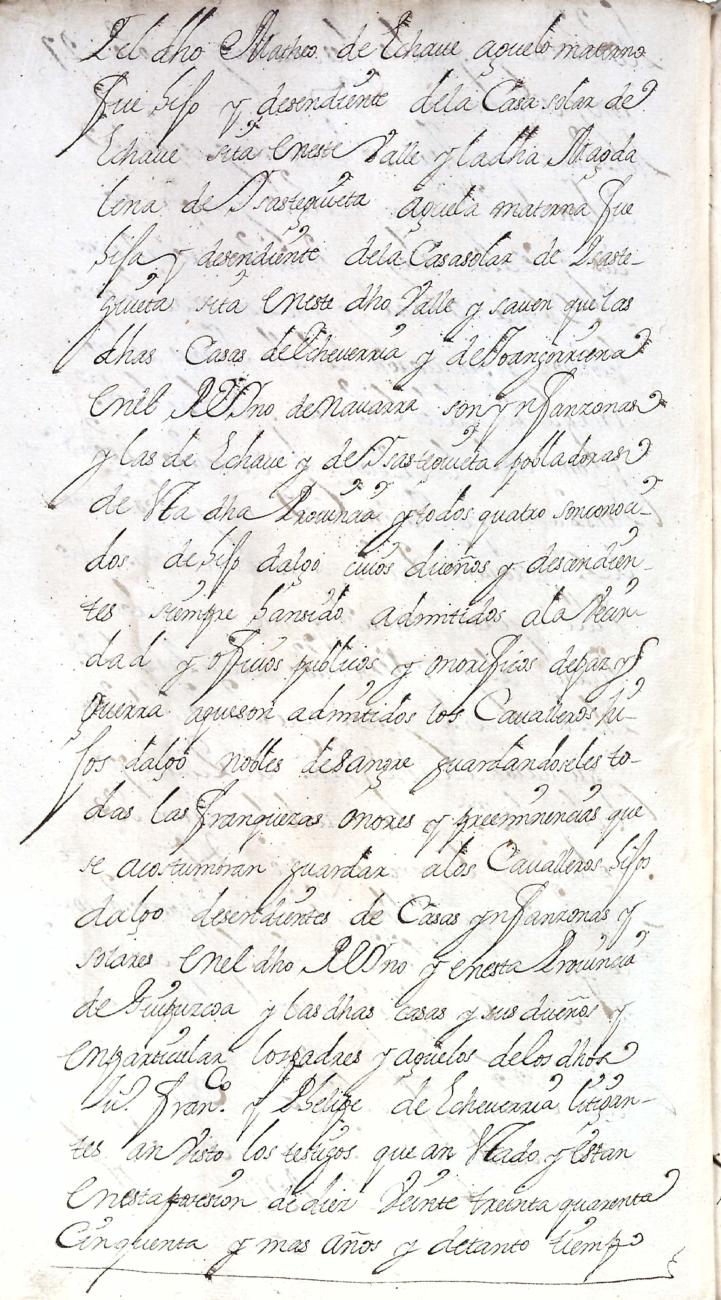 Y el dho Matheo de Echaue aguelo materno
fue hijo y desendiente dela Casa solar de
Echaue sita eneste Valle y la dha Magda
lena de Ysastegiueta aguela materna fue
hija y desendiente dela Casasolar de Ysaste-
giueta sita eneste dho Valle y sauen que las
dhas Casas de Echeverria y de Joangorriena
enel REyno de Navarra son ynfanzonas
y las de Echaue y de Ysastegiueta pobladoras
de Esta dha Prouincia y todos quatro son conoci-
dos de hijos dalgo cuios dueños y desendien-
tes siempre han sido admitidos ala Vecin-
dad y officios publicos y onorificos depaz y
guerra aque son admitidos los Caualleros hi-
jos dalgo nobles desangre guardandoseles to-
das las franquezas onores y preeminencias que
se acostumbran guardar alos Caualleros hijos
dalgo desendientes de Casas ynfanzonas y
solares enel dho REyno y enesta Prouincia
de Guipuzcoa y las dhas casas y sus dueños y
enparticular los padres y aguelos delos dhos
Ju.º Fran.co y Phelipe de Echeverria litigan-
tes an Visto los testigos que an Estado y Estan
enesta posesion de diez Veinte treinta quarenta
Cinquenta y mas años y detanto tiempo